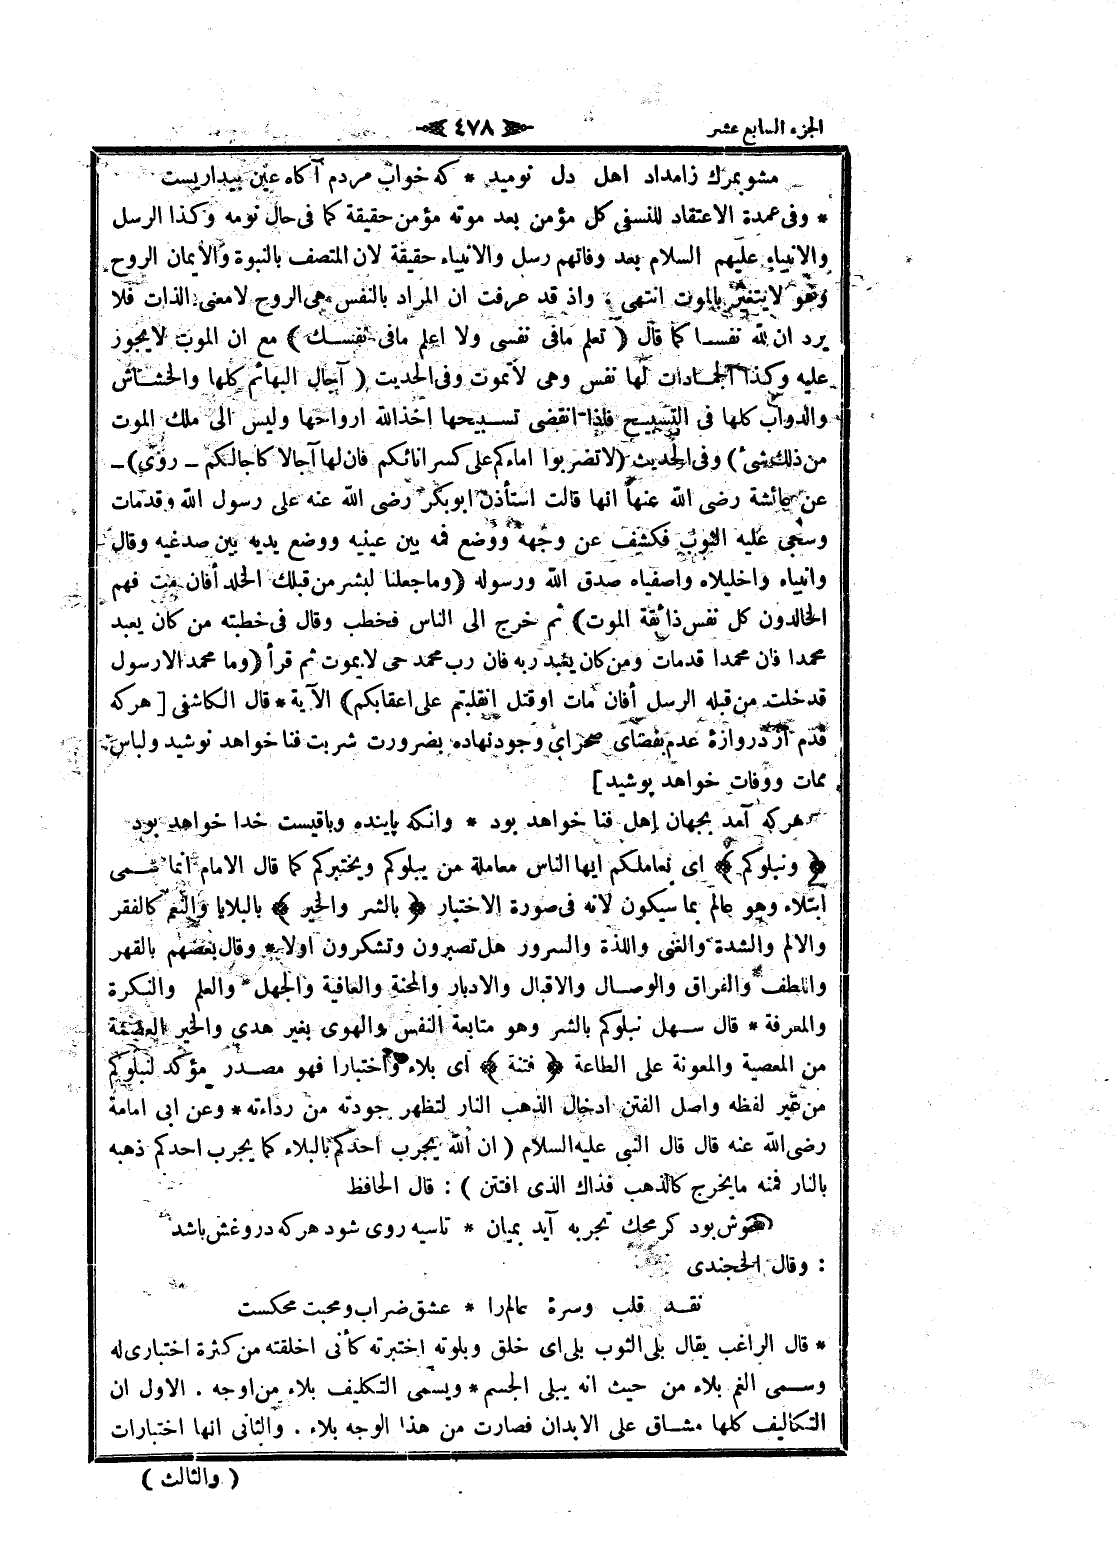 الجزء السابع عشر
٤٧٨
مشو بمرك زامداد اهل دل نوميد * كه خواب مردم آكاه عين بيداريست
* وفى عمدة الاعتقاد للنسفى كل مؤمن بعد موته مؤمن حقيقة كما فى حال نومه وكذا الرسل
والانبياء عليهم السلام بعد وفاتهم رسل والانبياء حقيقة لان المتصف بالنبوة والأيمان الروح
وهو لايتغير بالموت انتهى . واذ قد عرفت ان المراد بالنفس هى الروح لامعنى الذات فلا
يرد ان لله نفسا كما قال ( تعلم مافى نفسى ولا اعلم مافى نفسك ) مع ان الموت لايجوز
عليه وكذا الجمادات لها نفس وهى لاتموت وفى الحديث ( آجال البهائم كلها والخشاش
والدواب كلها فى التسبيح فاذا انقضى تسبيحها اخذالله ارواحها وليس الى ملك الموت
من ذلك شئ ) وفى الحديث (لا تضربوا اماءكم على كسر انائكم فان لها آجالا كآجالكم – روى) –
عن عائشة رضى الله عنها انها قالت استأذن ابوبكر رضى الله عنه على رسول الله وقدمات
وسجى عليه الثوب فكشف عن وجهه ووضع فمه بين عينيه ووضع يديه بين صدغيه وقال
وانبياه واخليلاه واصفياه صدق الله ورسوله (وماجعلنا لبشر من قبلك الخلد أفان مت فهم
الخالدون كل نفس ذائقة الموت) ثم خرج الى الناس فخطب وقال فى خطبته من كان يعبد
محمدا فان محمدا قدمات ومن كان يعبد ربه فان رب محمد حى لايموت ثم قرأ (وما محمد الارسول
قدخلت من قبله الرسل أفان مات اوقتل انقلبتم على اعقابكم) الآية * قال الكاشفى [ هركه
قدم از دروازۀ عدم بفضاى صحراى وجودنهاده بضرورت شربت فنا خواهد نوشيد ولباس
ممات ووفات خواهد پوشيد]
هركه آمد بجهان اهل فنا خواهد بود * وانكه پاينده وباقيست خدا خواهد بود
﴿ ونبلوكم ﴾ اى نعاملكم ايها الناس معاملة من يبلوكم ويختبركم كما قال الامام انما سمى
ابتلاء وهو عالم بما سيكون لانه فى صورة الاختبار ﴿ بالشر والخير ﴾ بالبلايا والنعم كالفقر
والالم والشدة والغنى واللذة والسرور هل تصبرون وتشكرون اولا * وقال بعضهم بالقهر
واللطف والفراق والوصال والاقبال والادبار والمحنة والعافية والجهل والعلم والنكرة
والمعرفة * قال سهل نبلوكم بالشر وهو متابعة النفس والهوى بغير هدى والخير العصمة
من المعصية والمعونة على الطاعة ﴿ فتنة ﴾ اى بلاء واختبارا فهو مصدر مؤكد لنبلوكم
من غير لفظه واصل الفتن ادخال الذهب النار لتظهر جودته من رداءته * وعن ابى امامة
رضى الله عنه قال قال النبى عليه السلام ( ان الله يجرب احدكم بالبلاء كما يجرب احدكم ذهبه
بالنار فمنه مايخرج كالذهب فذاك الذى افتتن ) : قال الحافظ
خوش بود كر محك تجربه آيد بميان * تاسيه روى شود هركه دروغش باشد
: وقال الخجندى
نقد قلب وسرۀ عالم را * عشق ضراب ومحبت محكست
* قال الراغب يقال بلى الثوب بلى اى خلق وبلوته اختبرته كأنى اخلقته من كثرة اختبارى له
وسمى الغم بلاء من حيث انه يبلى الجسم * ويسمى التكليف بلاء من اوجه . الاول ان
التكاليف كلها مشاق على الابدان فصارت من هذا الوجه بلاء . والثانى انها اختبارات
( والثالث )